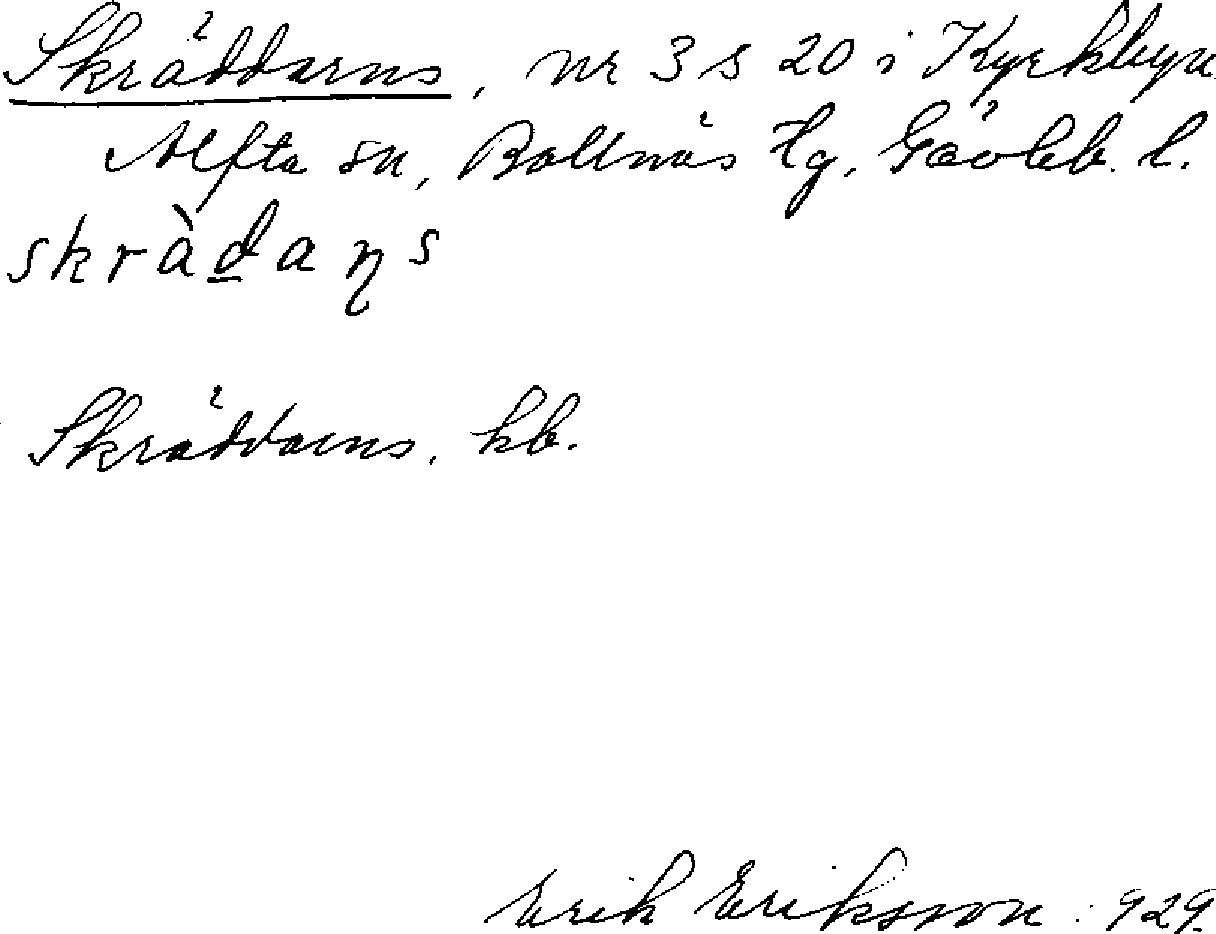 Skräddarns, nr 3 s 20 i Kyrkbyn
Alfta sn, Bollnäs tg, Gävleb. l.
skràd̲aɳs
Skräddarns, kb.
Erik Eriksson 929.